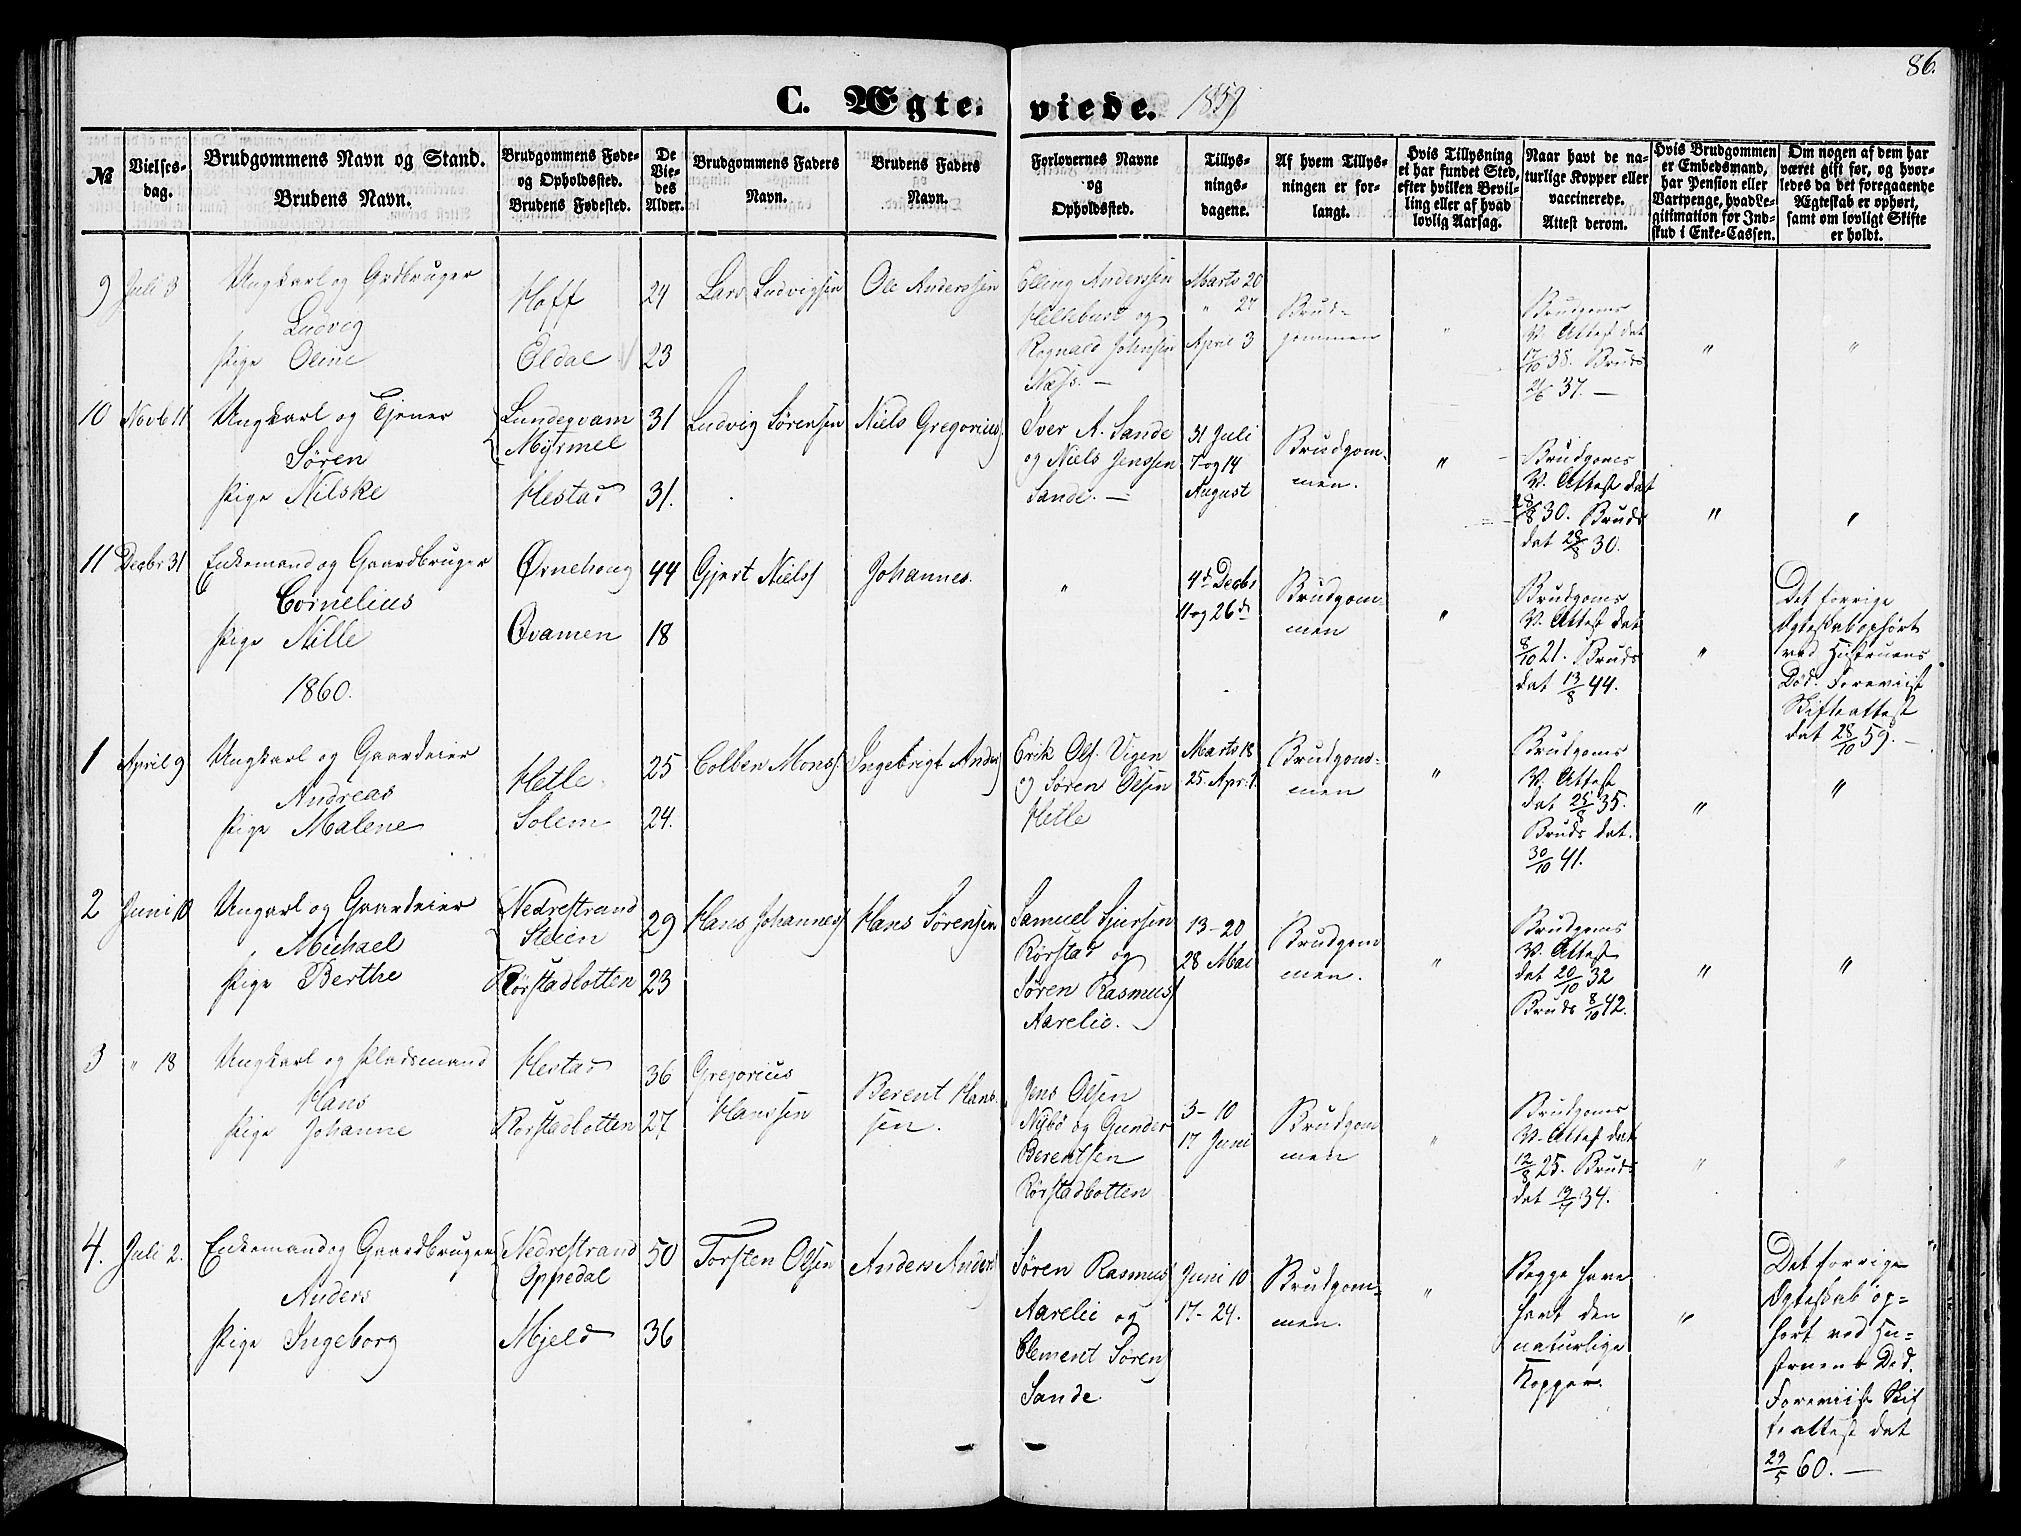 86.
C. Ægteviede. 1859
№
Vielsesdag.
Brudgommens Navn og Stand.
Brudens Navn.
Brudgommens Føde- og Opholdssted.
Brudens Fødested.
De Viedes Alder.
Brudgommens Faders Navn.
Brudens Faders Navn.
Forlovernes Navne og Opholdssted.
Tillysningsdagene.
Af hvem Tillysningen er forlangt.
Hvis Tillysning ei har fundet Sted, efter hvilken Bevilling eller af hvad lovlig Aarsag.
Naar havt de naturlige Kopper eller vaccinerede. Attest derom.
Hvis Brudgommen er Embedsmand, har Pension eller Vartpenge, hvad Legitimation for Indskud i Enke-Cassen.
Om nogen af dem har været gift før, og hvorledes da det foregaaende Ægteskab er ophørt, samt om lovligt Skifte er holdt.
9 Juli 3 Ungkarl og Grdbruger Ludvig Hoff 24 Lars Ludvigsen Ole Anderssen
Pige Oline Eldal 23
Elling Anderssen
og
Rognald Johnsen
Næss. —
Marts 20
" 27
April 3
Brudgommen " Brudgoms
V. Attest dat
17/10 38. Bruds
26/6 37. — " "
10 Novb 11 Ungkarl og Tjener Søren Lundeqvam Myrmel 31 Ludvig Sørensen Niels Gregorius
Pige Nilske Hestad 31.
Iver A. Sande
og Niels Jenssen
Sande. —
31 Juli
7 og 14
August
Brudgommen. " Brudgoms
V. Attest dat
28/8 30. Bruds
dat 28/8 30. " "
11 Decbr 31 Enkemand og Gaardbruger Cornelius Ørnehoug 44 Gjert Niels Johannes.
Pige Nille Qvamen 18
"
4de Decbr
11 og 26de
Brudgommen " Brudgoms
V. Attest dat
8/10 21. Bruds
dat 13/8 44. "
Det forrige
Ægteskab ophørt
ved Hustruens
Død. Foreviist
Skifteattest
dat 28/10 59. —
1860.
1 April 9 Ungkarl og Gaardeier Andreas Hetle 25 Colben Mons Ingebrigt Anders
Pige Malene Solem 24.
Erik Ols. Vigen
og Søren Olsen
Hetle
Marts 18
25. Apr. 1.
Brudgommen " Brudgoms
V. Attest
dat 25/8 35.
Bruds dat.
30/10 41. " "
2 Juni 10 Ungarl og Gaardeier Michael Nedrestrand Steien 29 Hans Johannes Hans Sørensen
Pige Berthe Rørstadbotten 23
Samuel Sjursen
Rørstad og
Søren Rasmus
Aarelie.
13–20
28 Mai
Brudgommen. " Brudgoms
V. Attest
dat 20/10 32
Bruds 8/10 42. " "
3 " 18 Ungkarl og Pladsmand Hans Hestad 36 Gregorius Hanssen Berent Hanssen.
Pige Johanne Rørstadbotten 27
Jens Olsen
Nybø og Gunder
Berentsen
Rørstadbotten
3–10
17 Juni
Brudgommen " Brudgoms
V. Attest dat
12/8 25. Bruds
dat 34. " "
4. Juli 2. Enkemand og Gaardbruger Anders Nedrestrand Oppedal 50 Torsten Olsen Anders Anders
Pige Ingeborg Mjeld 36
Søren Rasmus
Aarelie og
Clement Søren
Sande
Juni 10
17–24.
Brudgommen. " Begge have
havt den
naturlige
Kopper. "
Det forrige
Ægteskab op=
hørt ved Hu=
struens Død.
Foreviist Skif
teattest dat
29/5 60. —